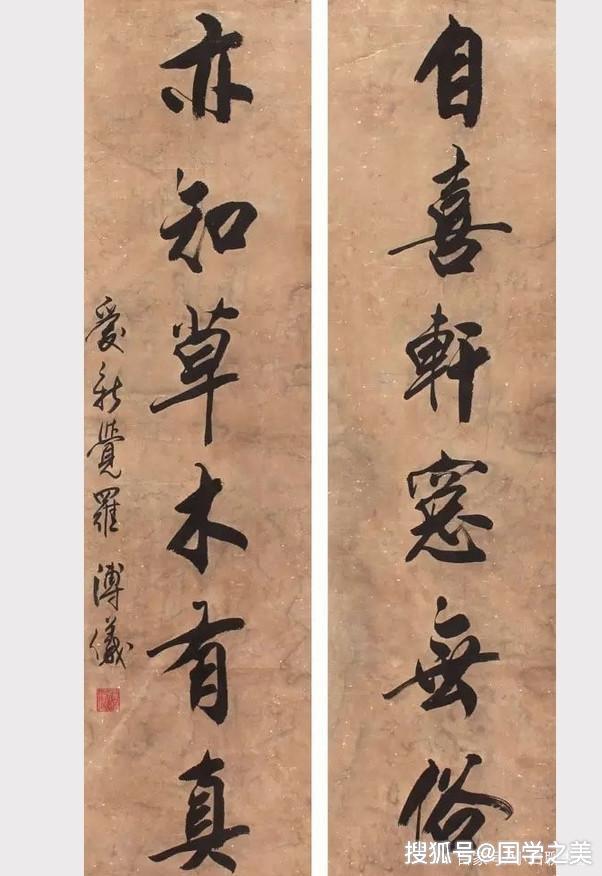 自喜軒窻無俗
亦知草木有真
愛新覺羅 溥儀
搜狐号@国学之美